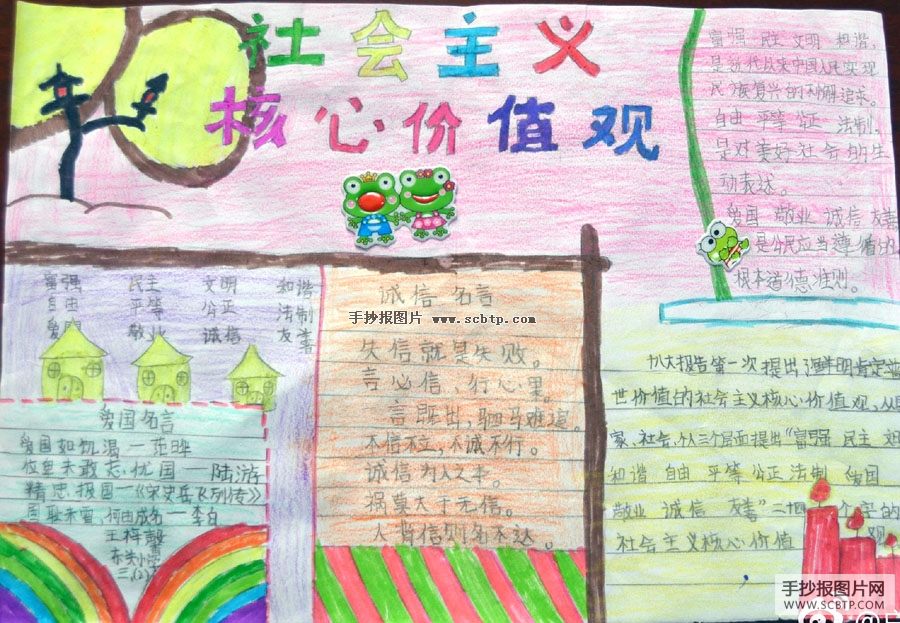 社会主义
核心价值观
富强 民主 文明 和谐,
是近代以来中国人民实现
民族复兴的 追求。
自由 平等 公正 法制,
是对美好社会的生
动表述。
爱国 敬业 诚信 友善
是公民应当遵 的
根本道德准则。
富强 民主 文明 和谐
自由 平等 公正 法制
爱国 敬业 诚信 友善
爱国名言
爱国如饥渴—
位卑未敢忘忧国—陆游
精忠报国—《宋史岳飞列传》
国耻未雪,何由成名—李白
诚信 名言
手抄报图片 www.scbtp.com
失信就是失败。
言必信、行必果。
言既出,驷马难追。
不信不立,不诚不行。
诚信为人之本。
祸莫大于无信。
人背信则名不达。
八大报告第一次提出 鲜明肯定
世价值的社会主义核心价值观,从
家、社会、个人三个层面提出"富强 民主 文
和谐 自由 平等 公正 法制 爱国
敬业 诚信 友善"二四个字的
社会主义核心价值 观
手抄报图片网
WWW.SCBTP.COM